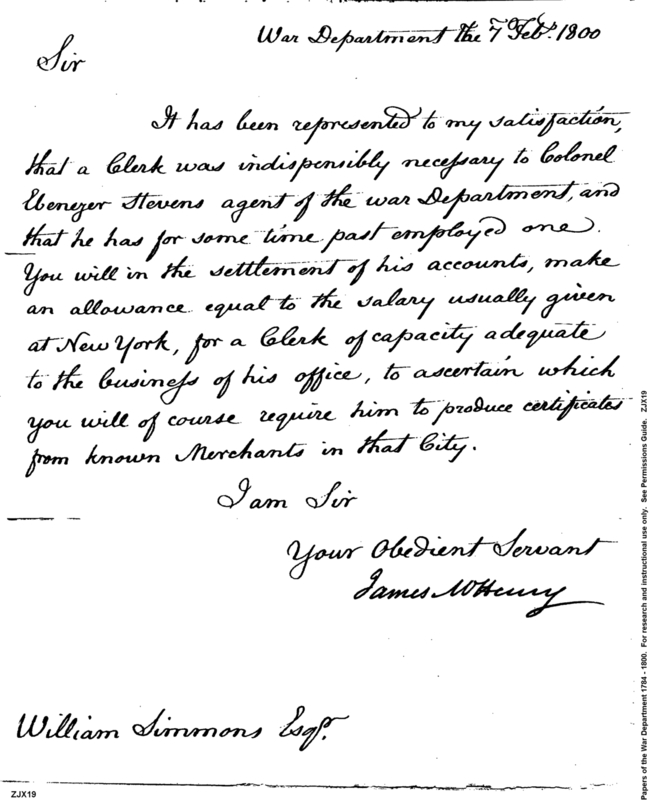 War Department the 7 Feby. 1800
Sir
It has been represented to my satisfaction,
that a Clerk was indispensibly necessary to Colonel
Ebenezer Stevens agent of the war Department, and
that he has for some time past employed one.
You will in the settlement of his accounts, make
an allowance equal to the salary usually given
at New York, for a Clerk of capacity adequate
to the business of his office, to ascertain which
you will of course require him to produce certificates
from known Merchants in that City.
I am Sir
Your Obedient Servant
James McHenry
William Simmons Esqr.
ZJX19
Papers of the War Department 1784 - 1800. For research and instructional use only. See Permissions Guide. ZJX19